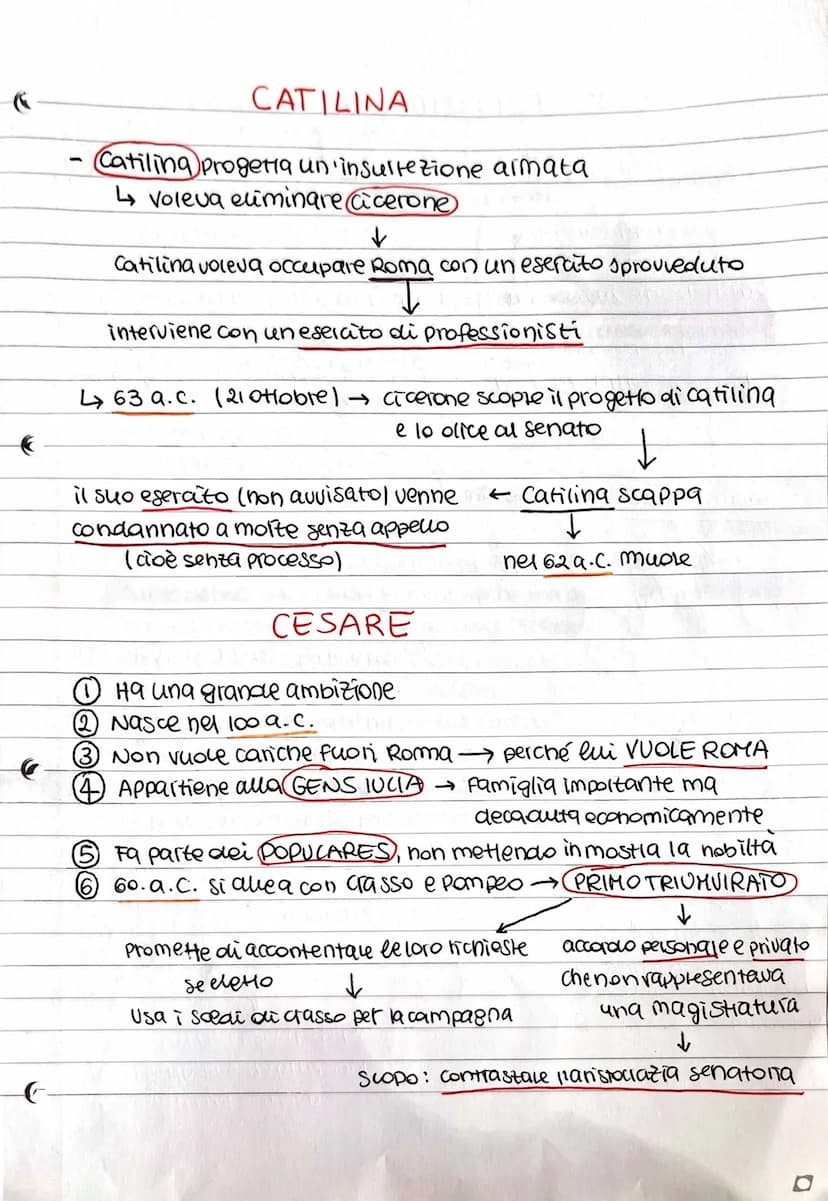 CATILINA
- Catilina progetta un'insurrezione armata
↳ voleva eliminare cicerone
↓
Catilina voleva occupare Roma con un esercito sprovveduto
↓
interviene con un esercito di professionisti
↳ 63 a.c. (21 ottobre) → cicerone scopre il progetto di catilina
e lo dice al senato
↓
il suo esercito (non avvisato) venne ← Catilina scappa
condannato a morte senza appello ↓
(cioè senza processo) nel 62 a.c. muore
CESARE
① Ha una grande ambizione
② Nasce nel 100 a.c.
③ Non vuole cariche fuori Roma → perché lui VUOLE ROMA
④ Appartiene alla GENS IULIA → famiglia importante ma
decaduta economicamente
⑤ Fa parte dei POPULARES, non mettendo in mostra la nobiltà
⑥ 60.a.C. si allea con crasso e pompeo → PRIMO TRIUMVIRATO
↓
Promette di accontentare le loro richieste accordo personale e privato
se eletto ↓ che non rappresentava
Usa i soldi di crasso per la campagna una magistratura
↓
SCOPO: contrastare l'aristocrazia senatoria